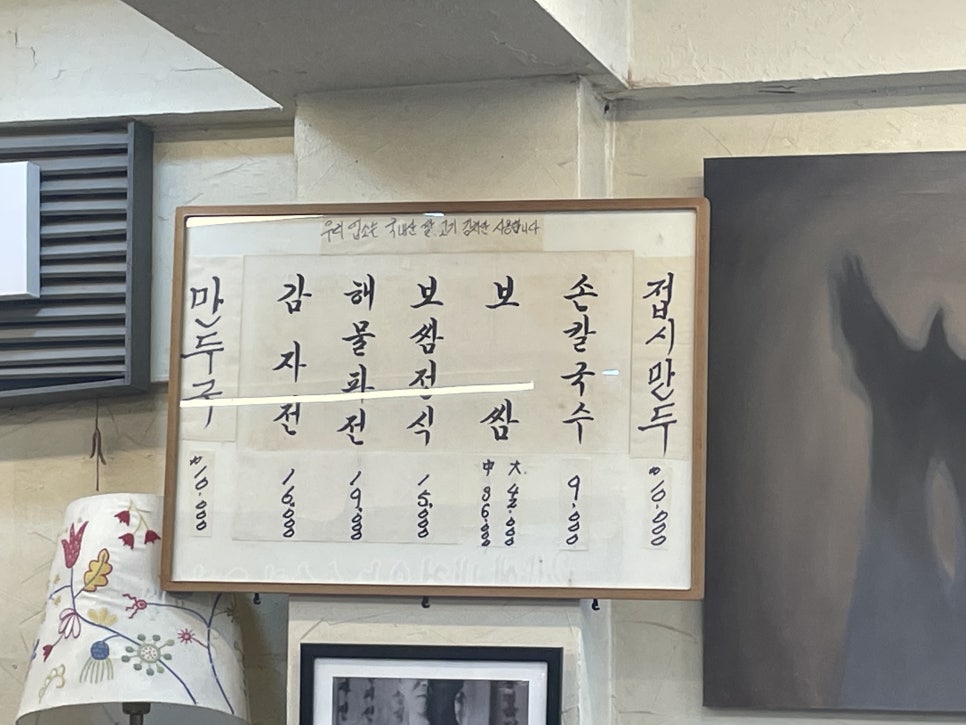 우리 업소는 국내산 쌀, 고기 김치만 사용합니다
접시만두 ₩10.000
손칼국수 9.000
보쌈 大. 42.000 中 36.000
보쌈전식 15.000
해물파전 19.000
감자전 16.000
만두국 ₩10.000